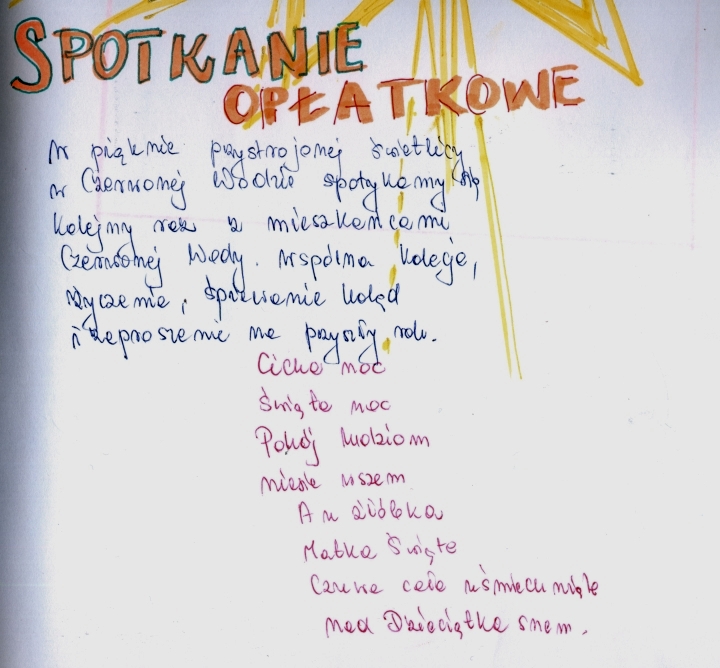 SPOTKANIE
OPŁATKOWE
W pięknie przystrojonej świetlicy
w Czerwonej Wodzie spotykamy się
kolejny raz z mieszkańcami
Czerwonej Wody. Wspólna kolacja,
życzenia, śpiewanie kolęd
i zaproszenie na przyszły rok.
Cicha noc
Święta noc
Pokój ludziom
niesie wszem
A u żłóbka
Matka Święta
Czuwa cała uśmiechnięta
nad Dzieciątka snem.